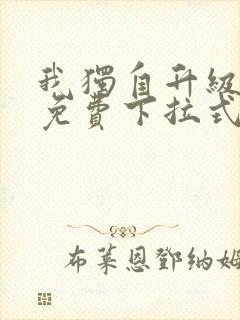 我獨自升級
免費下拉式
布萊恩鄧納姆